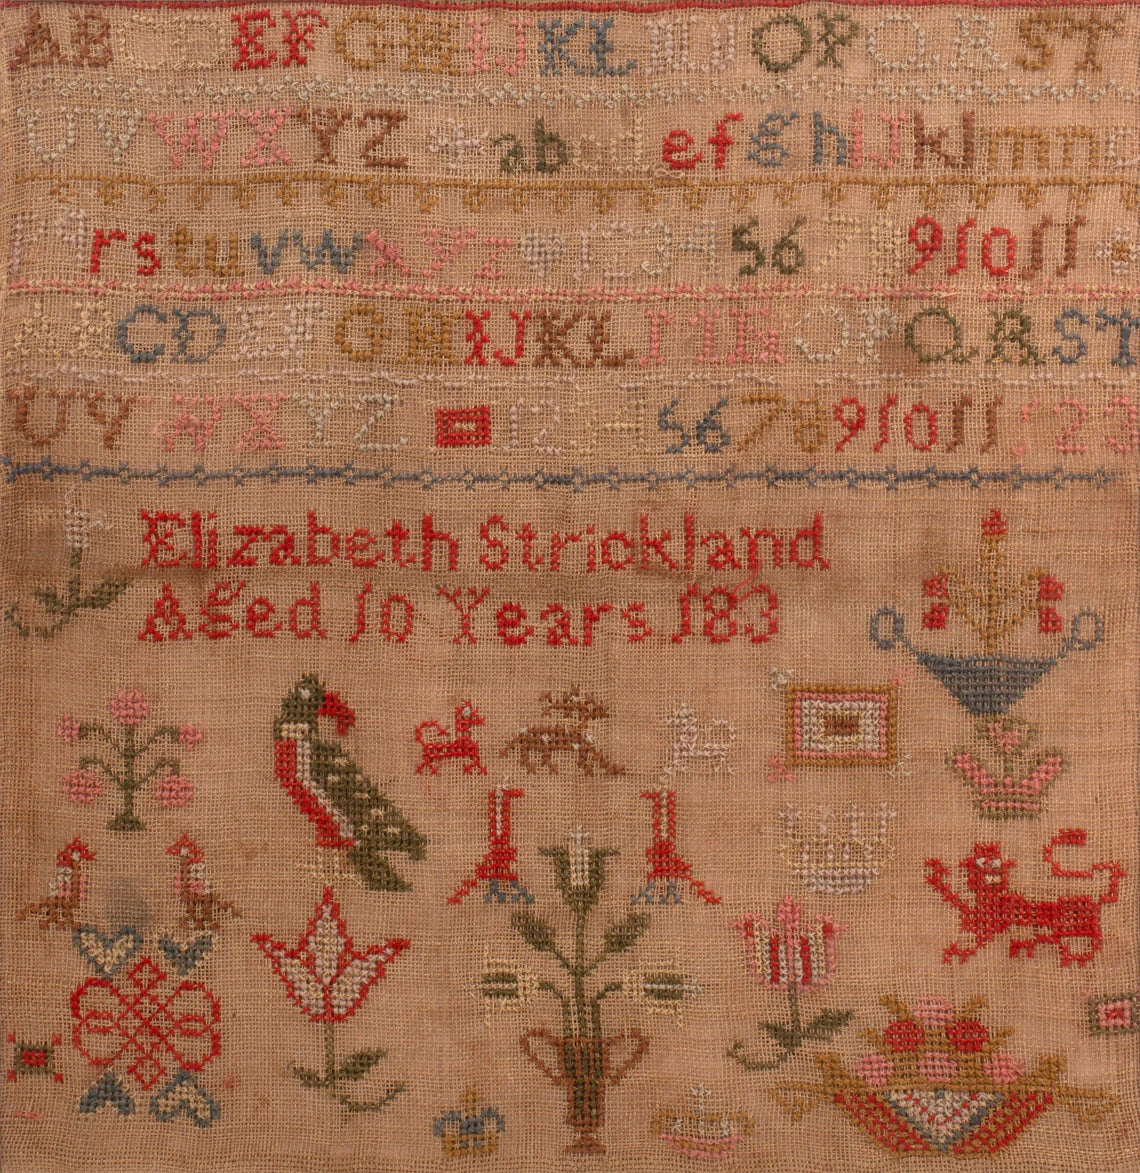 ABCDEFGHIJKLMNOPQRST
UVWXYZ abcdefghIJklmno
pqrstuvwxyz 1234567891011
ABCDEFGHIJKLMNOPQRST
UVWXYZ 1234567891011123
Elizabeth Strickland
Aged 10 Years 183